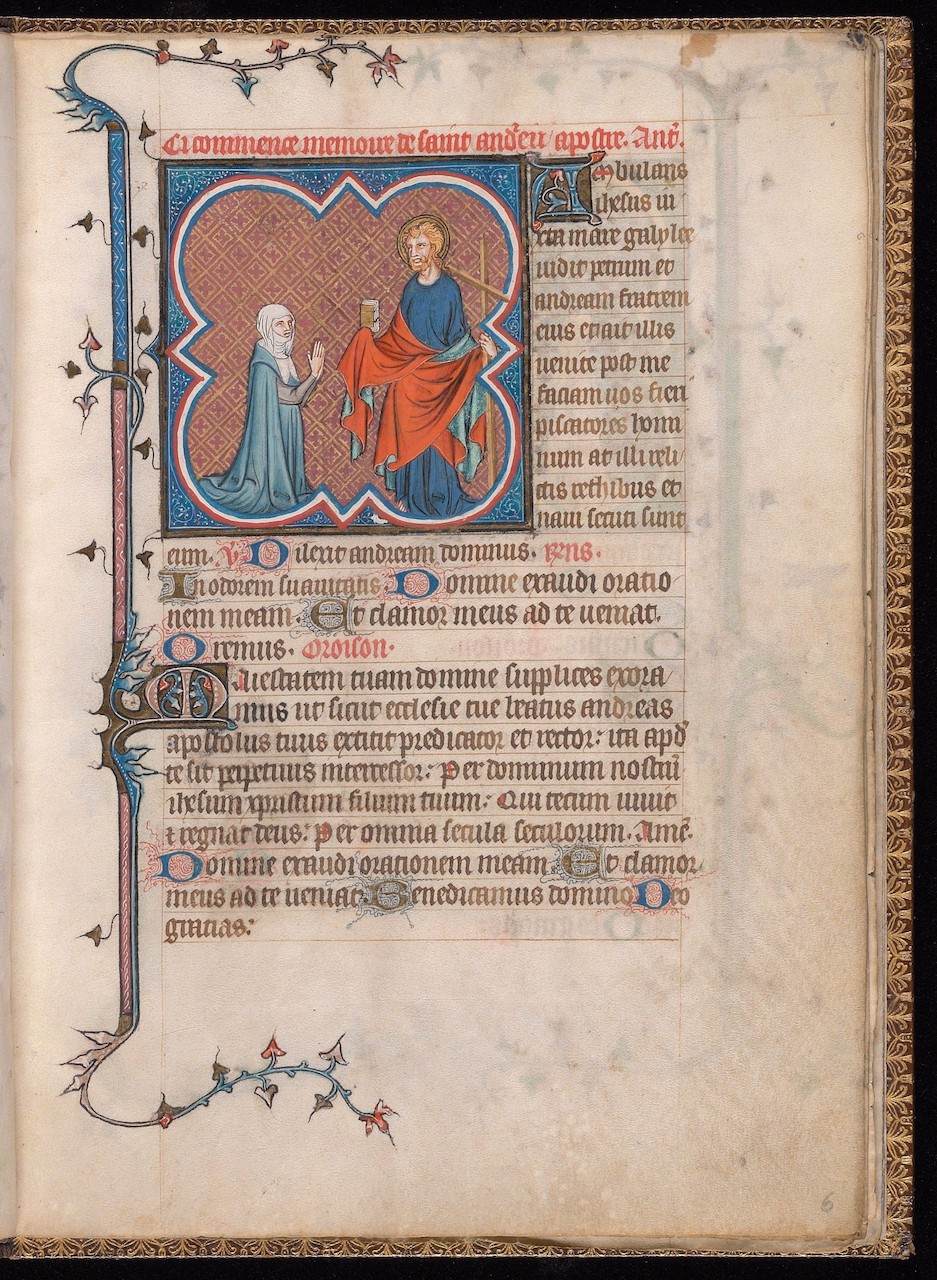 Ci commence memoire de saint andrieu apostre. Ant.
Ambulans
ihesus iu
xta mare galylee
uidit petrum et
andream fratrem
eius et ait illis
uenite post me
faciam uos fieri
piscatores homi
num at illi reli
ctis rethibus et
naui secuti sunt
eum. V. Dilexit andream dominus. Rens.
In odorem suauitatis Domine exaudi oratio
nem meam. Et clamor meus ad te ueniat.
Oremus. Oroison.
Maiestatem tuam domine supplices exora
mus ut sicut ecclesie tue beatus andreas
apostolus tuus extitit predicator et rector: ita apd
te sit perpetuus intercessor: Per dominum nostru
ihesum xpristum filium tuum: Qui tecum uiuit
et regnat deus: Per omnia secula seculorum. Ame.
Domine exaudi orationem meam Et clamor
meus ad te ueniat. Benedicamus domino Deo
gratias:
6